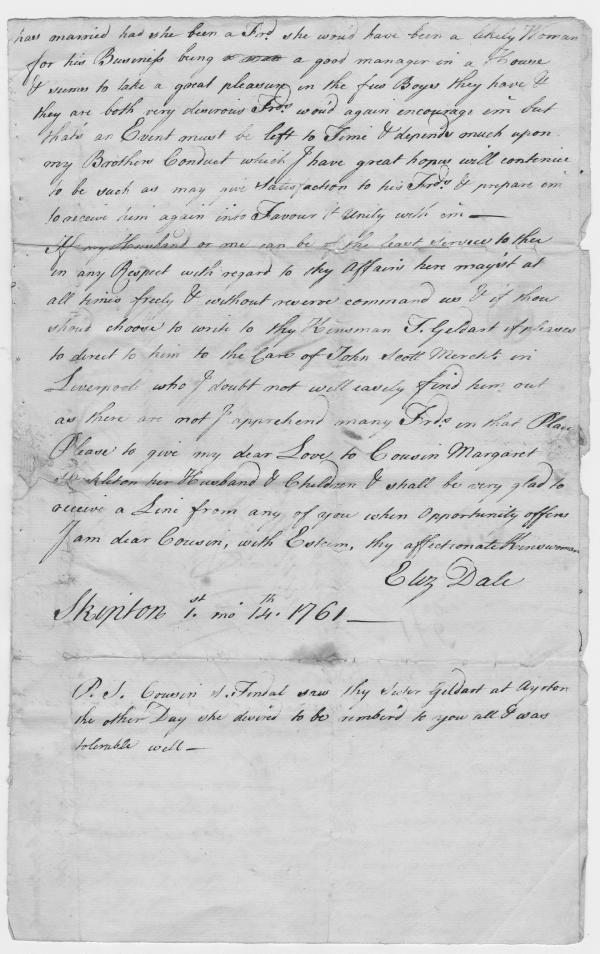 has married had she been a Frd. she wou'd have been a likely Woman
for his Business being a man a good manager in a House
& seems to take a great pleasure in the few Boyes they have &
they are both very desirous Frds. wou'd again encourage em but
thats an Event must be left to Time & depends much upon
my Brothers Conduct which I have great hopes will continue
to be such as may give Satisfaction to his Frds. & prepare em
to receive him again into Favour & Unity with em —
If my Husband or me can be of the least Service to thee
in any Respect with regard to thy Affairs here mayst at
all times freely & without reserve command us & if thou
shoud choose to write to thy Kinsman J. Geldart if pleases
to direct to him to the Care of John Scott Mercht. in
Liverpool who I doubt not will easely find him out
as there are not I apprehend many Frds. in that Place
Please to give my dear Love to Cousin Margaret
her Husband & Children & shall be very glad to
receive a Line from any of you when Opportunity offers
I am dear Cousin, with Esteem, thy affectionate Kinswoman
Eliz Dale
Skipton 1st. mo 14th. 1761 —
P.S. Cousin J. Tindal saw thy Sister Geldart at Ayrton
the other Day she desired to be rembrd to you all & was
tolerable well —